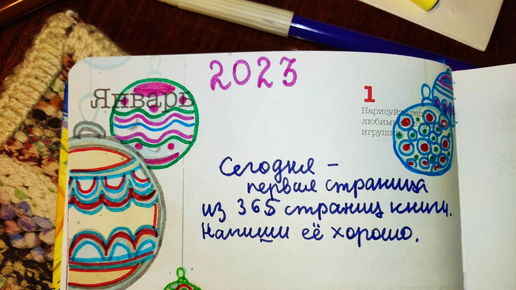 2023
Январь
1
Нарисуй
любим
игруш
Сегодня –
первая страница
из 365 страниц книги.
Напиши её хорошо.